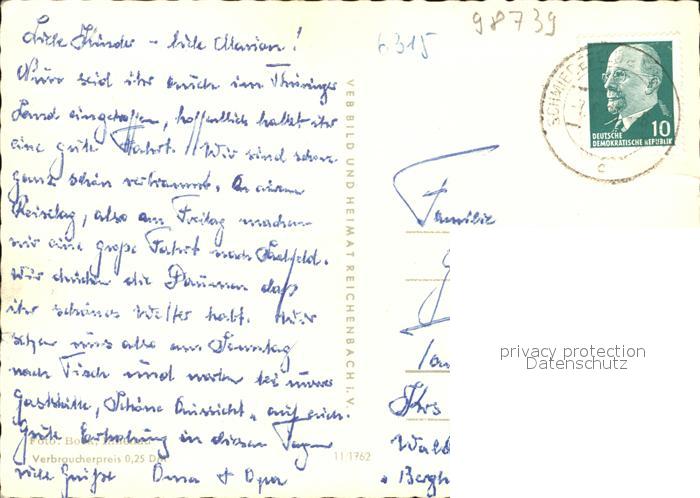 98739
f. 315
Liebe Kinder - liebe Marion!
Nun seid ihr auch im Thüringer
Land eingetroffen, hoffentlich hattet ihr
eine gute Fahrt. Wir sind schon
ganz schön verbrannt. An eurem
Reisetag, also am Freitag machen
wir eine große Fahrt nach Saalfeld.
Wir drücken die Daumen daß
ihr schönes Wetter habt. Wir
sehen uns also am Sonntag
nach Tisch und warten bei unserer
Gaststätte „Schöne Aussicht" auf euch.
Gute Erholung in diesen Tagen
viele Grüße Oma + Opa
Foto:
Verbraucherpreis 0,25 DM
11/1762
VEB BILD UND HEIMAT REICHENBACH i. V.
SCHMIEDEFELD
DEUTSCHE
DEMOKRATISCHE REPUBLIK
10
Familie
Krs
Wald
Bergh
privacy protection
Datenschutz